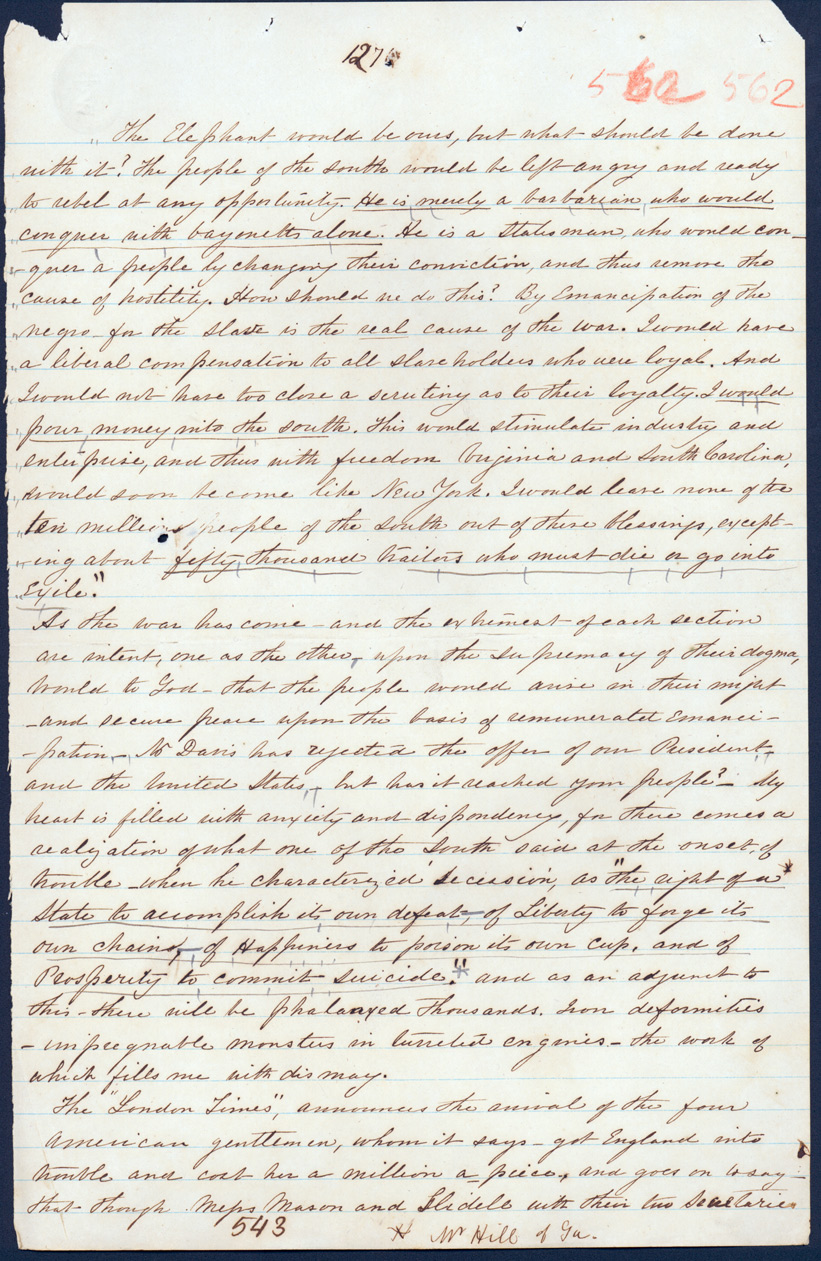 127
562 562
" The Elephant would be ours, but what should be done
with it? The people of the south would be left angry and ready
" to rebel at any opportunity. He is merely a barbarian, who would
" conquer with bayonetts alone. He is a Statesman, who would con-
"-quer a people by changing their conviction, and thus remove the
" cause of hostility. How should we do this? By Emancipation of the
" negro - for the slave is the real cause of the war. I would have
" a liberal compensation to all slaveholders who were loyal. And
" I would not have too close a scrutiny as to their loyalty. I would
" pour money into the south. This would stimulate industry and
" enterprise, and thus with freedom Virginia and South Carolina,
" would soon become like New York. I would leave none of the
" ten millions people of the South out of these blessings, except-
"-ing about fifty thousand traitors who must die or go into
" Exile."
As the war has come - and the extremest of each section
are intent, one as the other, upon the supremacy of their dogma,
Would to God - that the people would arise in their might
-and secure peace upon the basis of remunerated Emanci-
-pation - Mr Davis has rejected the offer of our President,
and the United States, - but has it reached your people? - My
heart is filled with anxiety and dispondency, for there comes a
realization of what one of the South said at the onset, of
trouble - when he characterized 'Secession', as "the right of a *
State to accomplish its own defeat, - of Liberty to forge its
own chains, - of Happiness to poison its own cup, and of
Prosperity to commit suicide." * and as an adjunct to
this - there will be phalanxed thousands. Iron deformities
- impregnable monsters in turreted engines - the work of
which fills me with dismay.
The "London Times", announces the arrival of the four
American gentlemen, whom it says - got England into
trouble and cost her a million a-piece, and goes on to say -
that though Messrs Mason and Slidell with their two Secretaries
543 * Mr Hill of Ga.